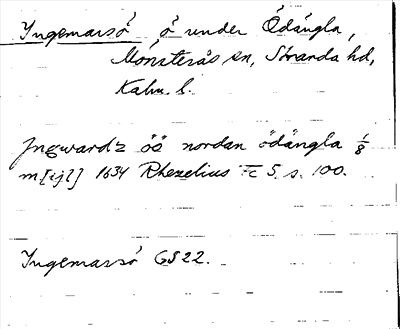 Ingemarsö ö under Ödängla,
Mönsterås sn, Stranda hd,
Kalm. l.
Ingwardz öö nordan ödängla 1/8
m[ijl] 1634 Rhezelius Fc 5. s. 100.
Ingemarsö GS 22.